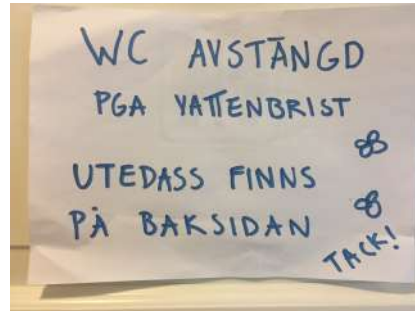 WC AVSTÄNGD
PGA VATTENBRIST
UTEDASS FINNS
PÅ BAKSIDAN
TACK!